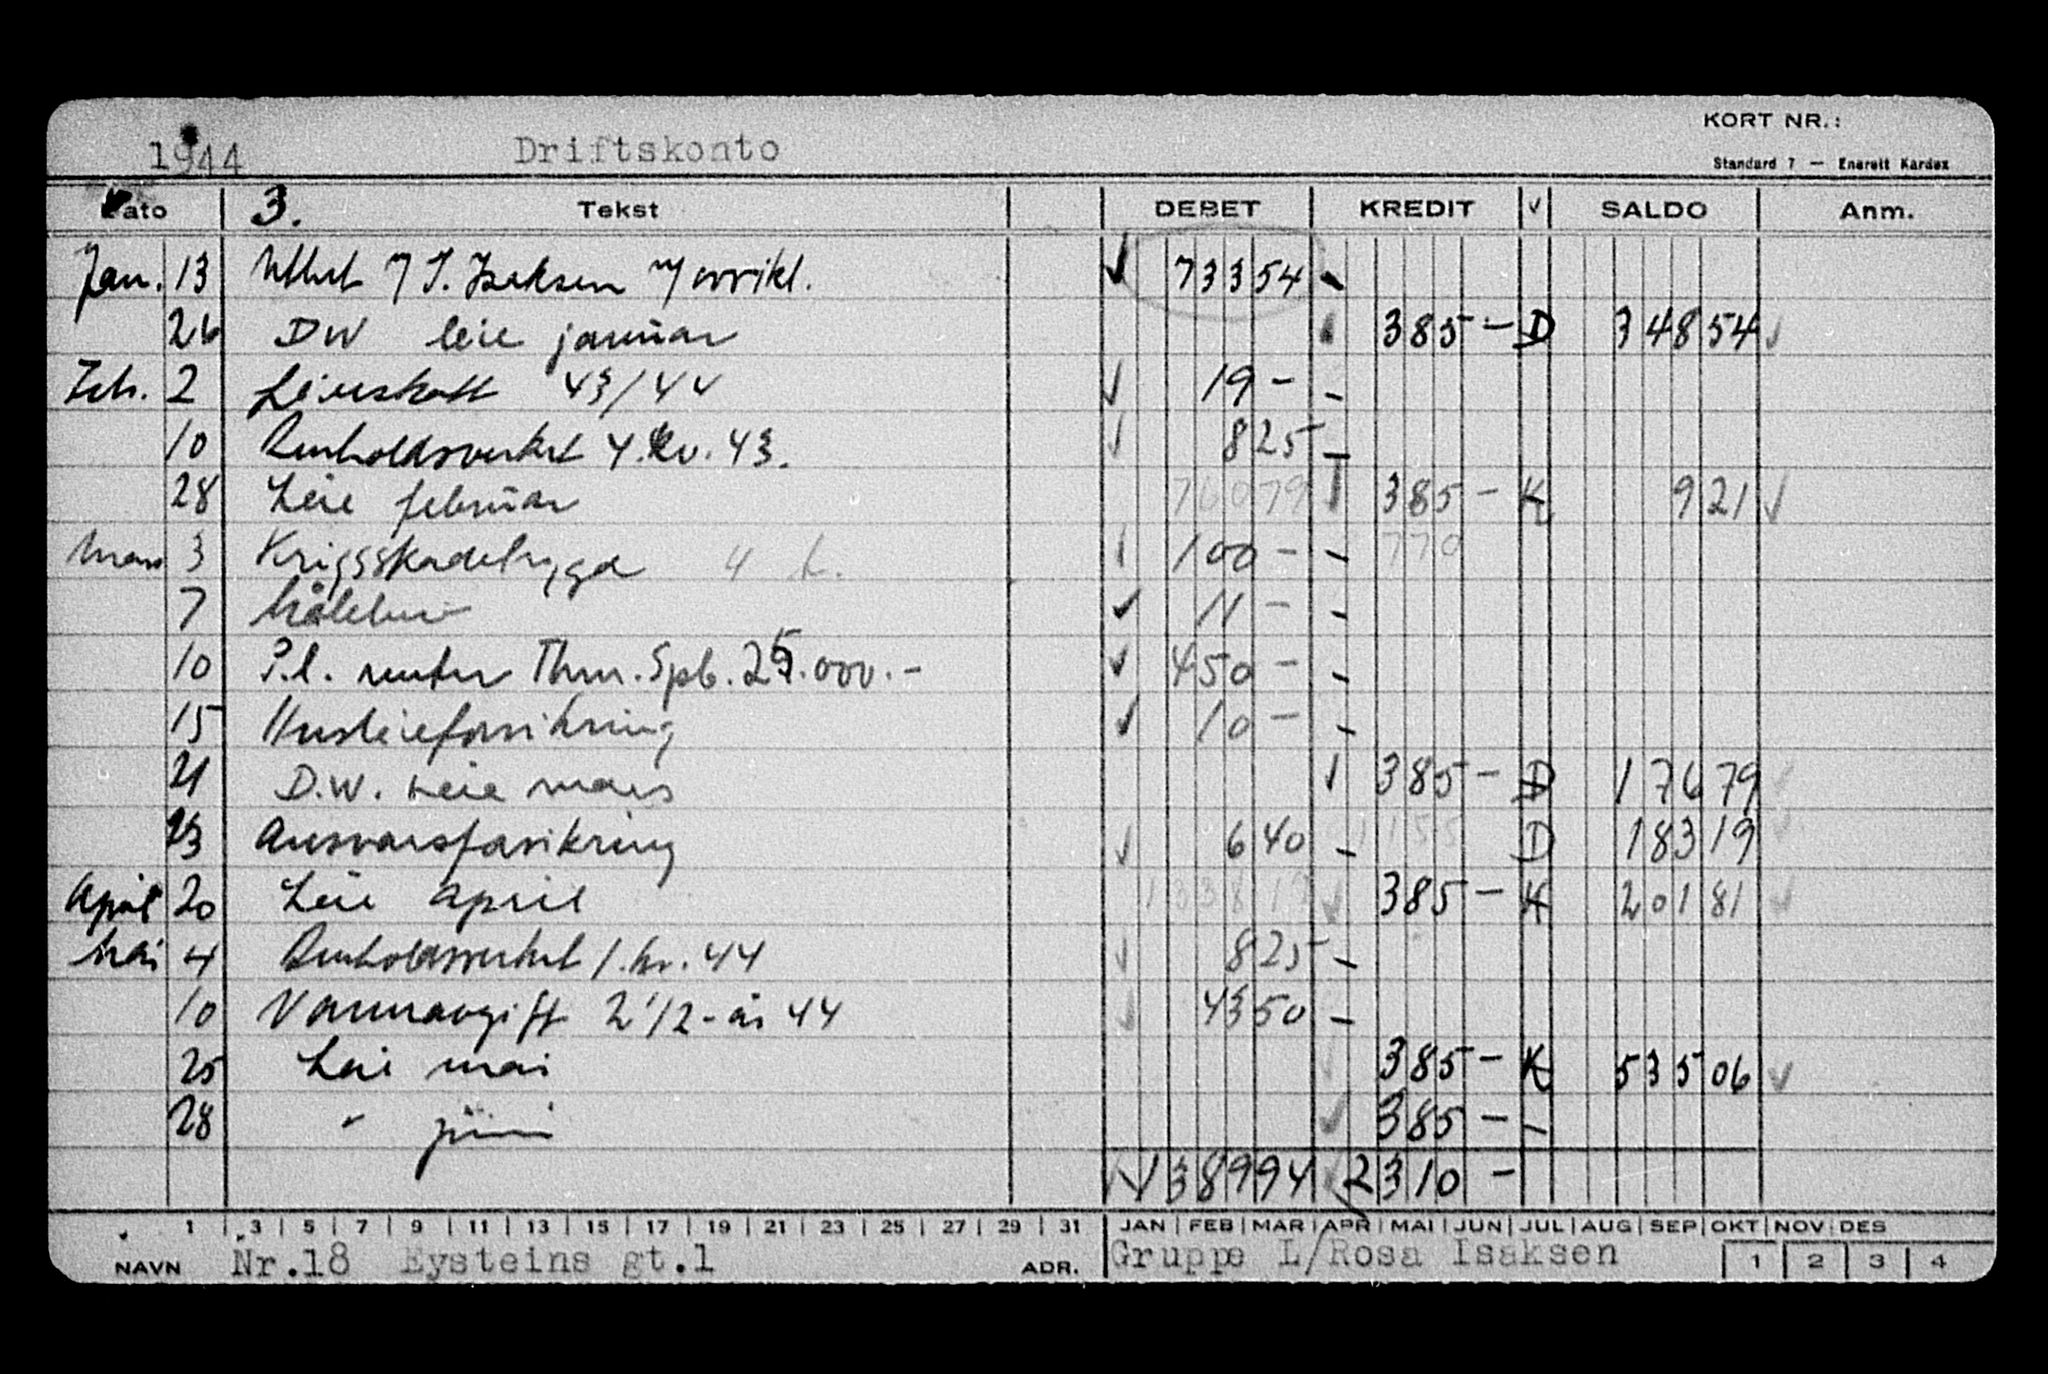 KORT NR.:
1944 Driftskonto
Standard 7 — Enerett Kardex
Dato 3. Tekst DEBET KREDIT √ SALDO Anm.
Jan. 13 J. Isaksen 733 54 -
26 DW leie januar 385 - D 348 54
Feb. 2 43/44 19 - -
10 Renholdsverket 4. kv. 43. 8 25 -
28 Leie februar 760 79 385 - K 9 21
Mars 3 Krigsskadetrygd 100 - - 770
7 11 - -
10 P.l. renter Thm. Spb. 25.000.- 450 - -
15 Husleieforsikring 10 - -
21 D.W. Leie mars 385 - D 176 79
23 Ansvarsforsikring 6 40 - 1155 D 183 19
April 20 Leie april 1338 19 385 - K 201 81
Mai 4 Renholdsverket 1. kv. 44 8 25 -
10 Vannavgift 2 1/2-år 44 43 50 -
25 Leie mai 385 - K 535 06
28 " juni 385 - -
1389 94 2310 -
1 3 5 7 9 11 13 15 17 19 21 23 25 27 29 31 JAN FEB MAR APR MAI JUN JUL AUG SEP OKT NOV DES
NAVN Nr.18 Eysteins gt.1 ADR. Gruppe L/Rosa Isaksen 1 2 3 4